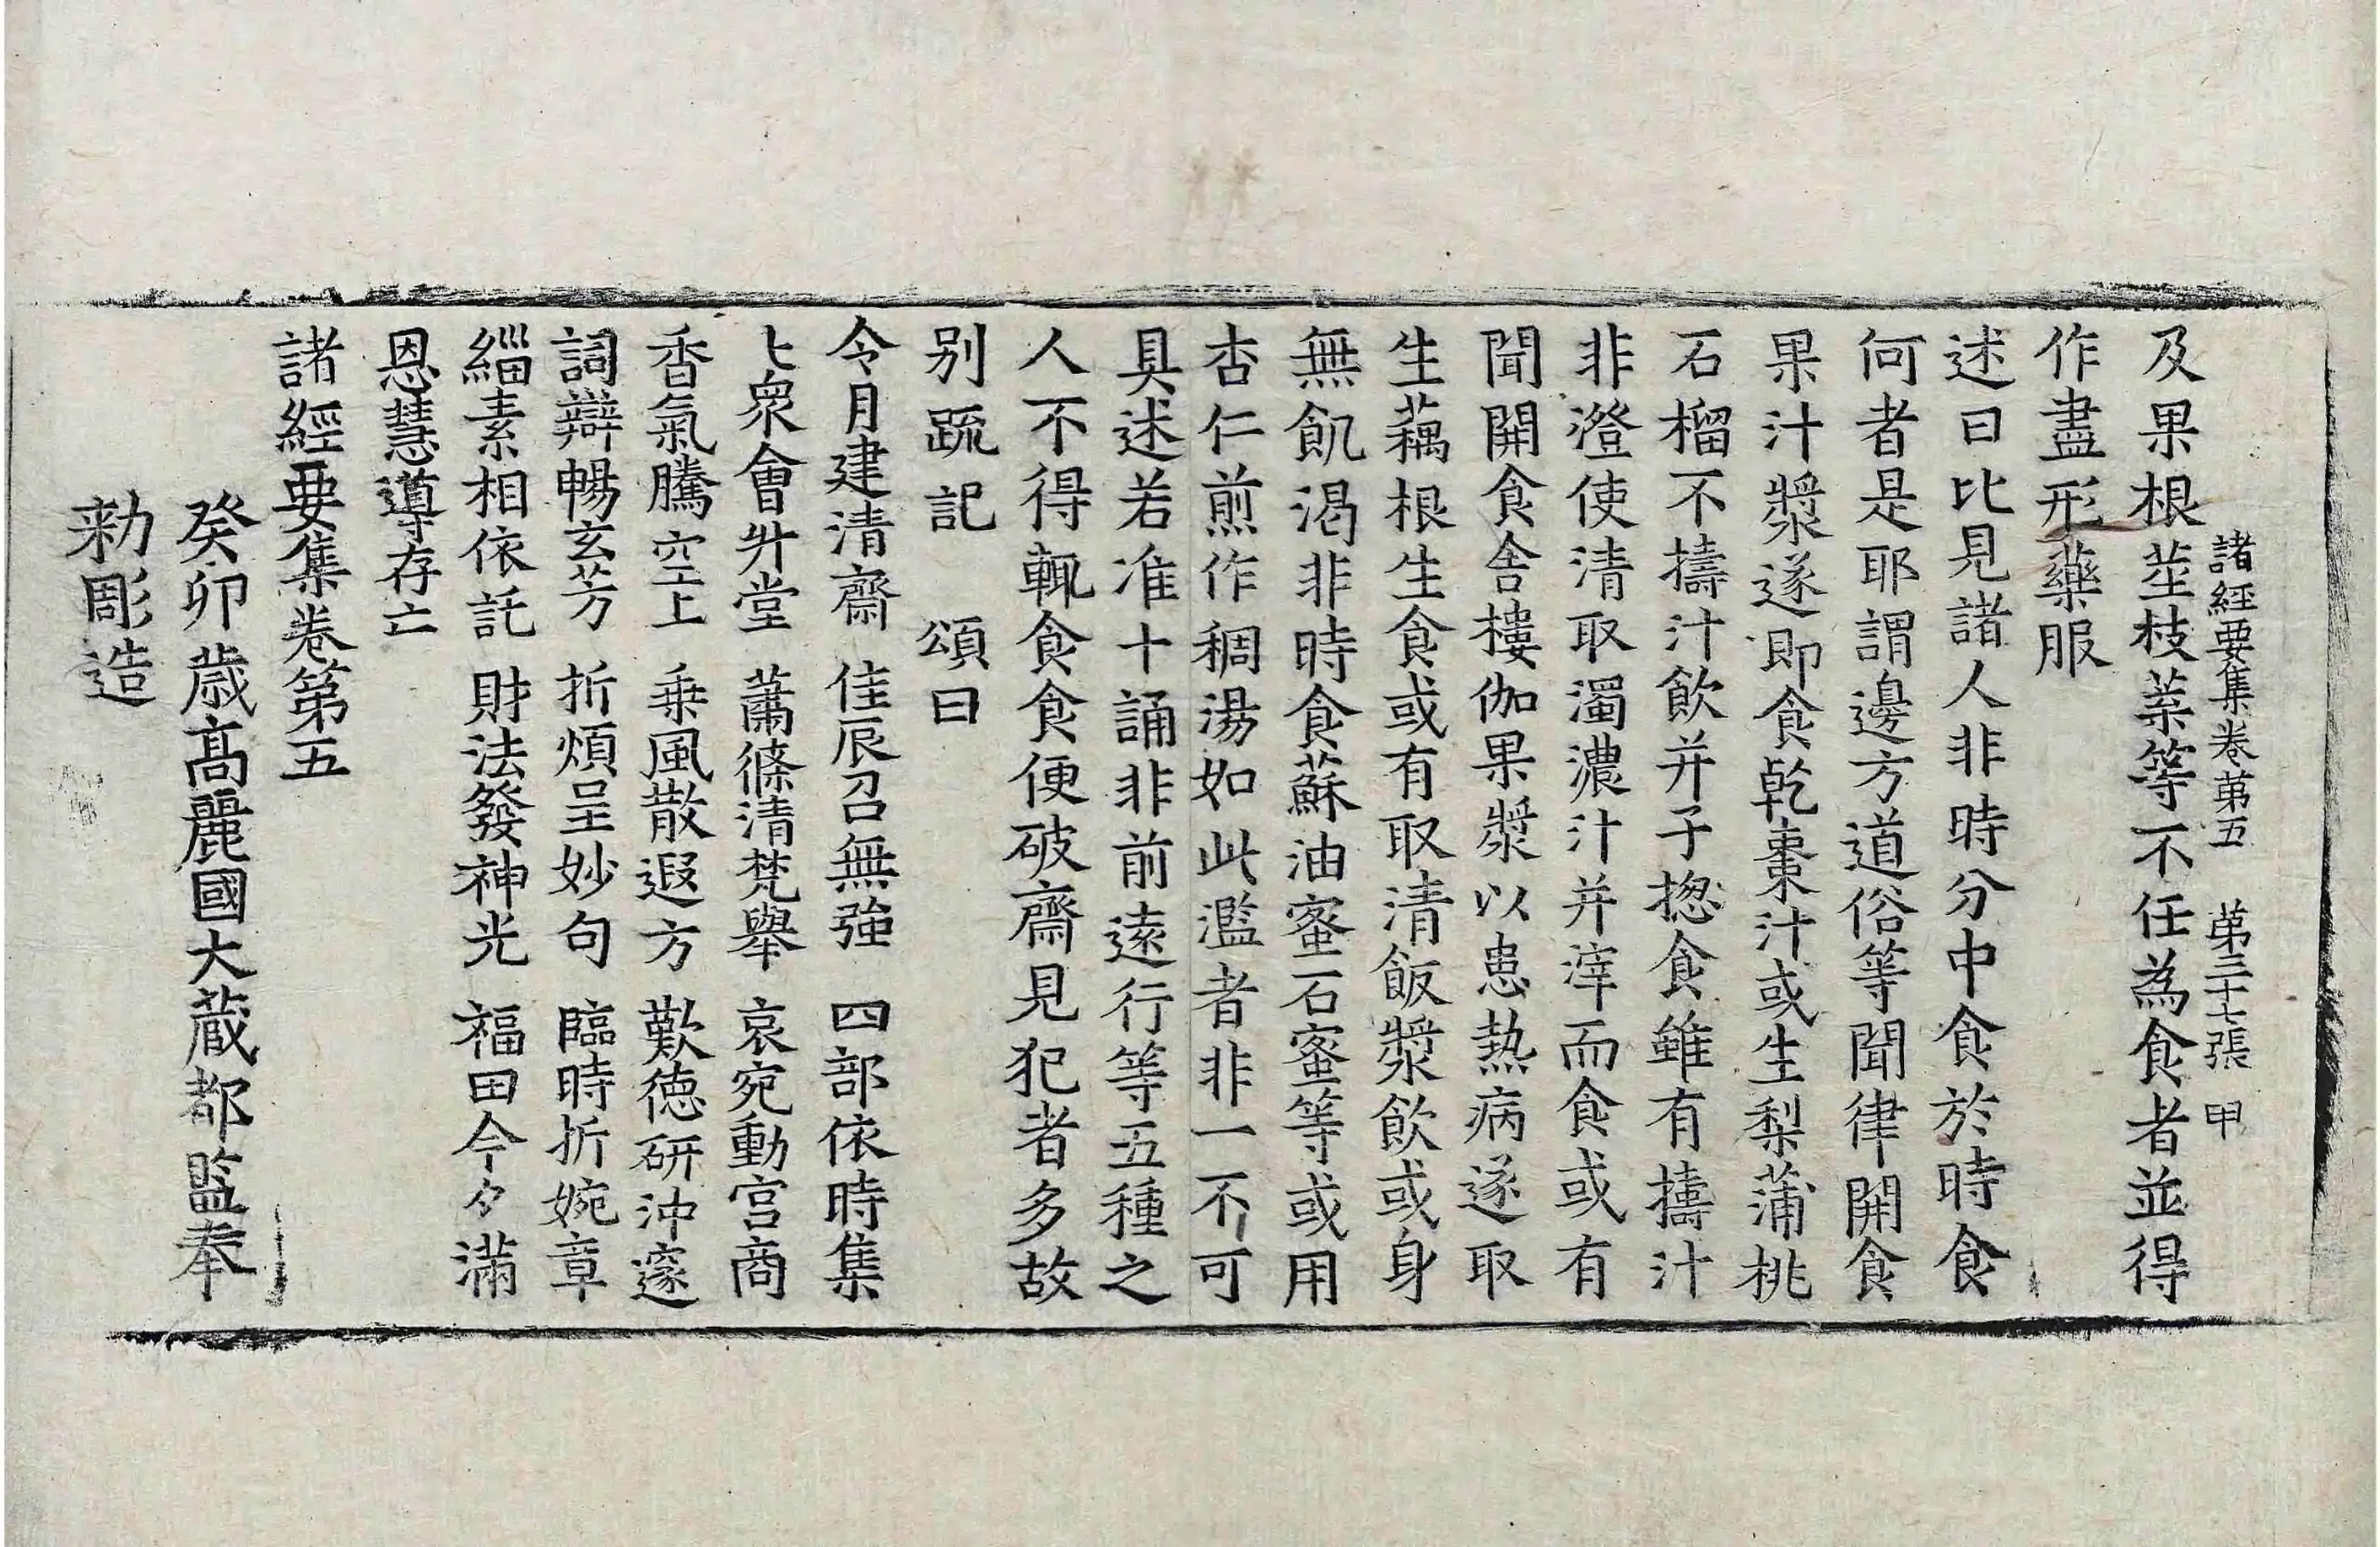 諸經要集卷第五　第三十七張　甲
及果根莖枝葉等不任為食者並得
作盡形藥服
述曰比見諸人非時分中食於時食
何者是耶謂邊方道俗等聞律開食
果汁漿遂即食乾棗汁或生梨蒲桃
石榴不擣汁飲并子揔食雖有擣汁
非澄使清取濁濃汁并滓而食或有
聞開食舍樓伽果漿以患熱病遂取
生藕根生食或有取清飯漿飲或身
無飢渴非時食蘇油蜜石蜜等或用
杏仁煎作稠湯如此濫者非一不可
具述若准十誦非前遠行等五種之
人不得輒食食便破齋見犯者多故
別疏記　頌曰
令月建清齋　佳辰召無強　四部依時集
七衆會升堂　蕭條清梵舉　哀宛動宮商
香氣騰空上　乗風散遐方　歎德研沖邃
詞辯暢玄芳　折煩呈妙句　臨時折婉章
緇素相依託　財法發神光　福田今夕滿
恩慧導存亡
諸經要集卷第五
癸卯歲高麗國大藏都監奉
勑彫造